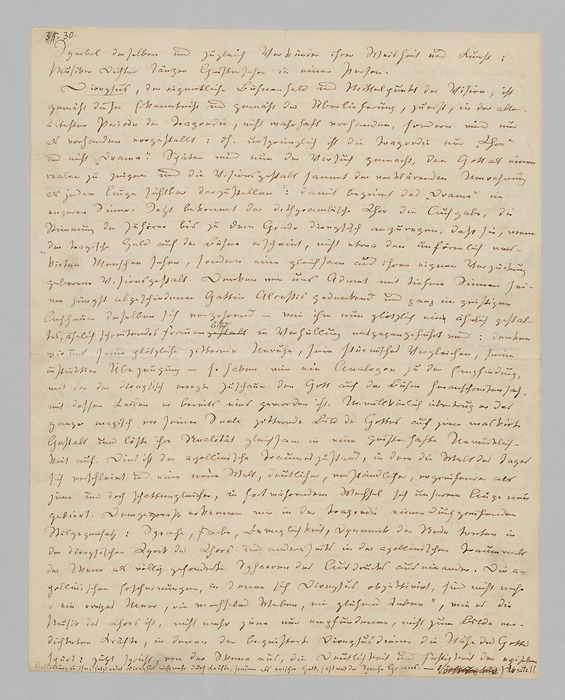 30.
Symbol derselben und zugleich Verkünder ihrer Weisheit und Kunst:
Musiker Dichter Tänzer Geisterseher in einer Person.
Dionysus, der eigentliche Bühnenheld und Mittelpunkt der Vision, ist
gemäß dieser Erkenntniß und gemäß der Überlieferung, zuerst, in der aller-
ältesten Periode der Tragoedie, nicht wahrhaft vorhanden, sondern wird nur
als vorhanden vorgestellt: dh. ursprünglich ist die Tragoedie nur „Chor“
und nicht „Drama“. Später wird nun der Versuch gemacht, den Gott als einen
realen zu zeigen und die Visionsgestalt sammt der verklärenden Umrahmung
als jedem Auge sichtbar darzustellen: damit beginnt das „Drama“ im
engeren Sinne. Jetzt bekommt der dithyrambische Chor die Aufgabe, die
Stimmung der Zuhörer bis zu dem Grade dionysisch anzuregen, daß sie, wenn
der tragische Held auf der Bühne erscheint, nicht etwa den unförmlich mas-
kirten Menschen sehen, sondern eine gleichsam aus ihrer eignen Verzückung
geborene Visionsgestalt. Denken wir uns Admet mit tiefem Sinnen sei-
ner jüngst abgeschiedenen Gattin Alcestis gedenkend und ganz im geistigen
Anschauen derselben sich verzehrend — wie ihm nun plötzlich ein ähnlich gestal-
tetes, ähnlich schreitendes Frauenbild in Verhüllung entgegengeführt wird: denken
wir uns seine plötzliche zitternde Unruhe, sein stürmisches Vergleichen, seine
instinktive Überzeugung — so haben wir ein Analogon zu der Empfindung,
mit der der dionysisch erregte Zuschauer den Gott auf der Bühne heranschreiten sah,
mit dessen Leiden er bereits eins geworden ist. Unwillkürlich übertrug er das
ganze magisch vor seiner Seele zitternde Bild des Gottes auf jene maskirte
Gestalt und löste ihre Realität gleichsam in eine geisterhafte Unwirklich-
keit auf. Dies ist der apollinische Traumeszustand, in dem die Welt des Tages
sich verschleiert und eine neue Welt, deutlicher, verständlicher, ergreifender als
jene und doch schattengleicher, in fortwährendem Wechsel sich unserem Auge neu
gebiert. Demgemäß erkennen wir in der Tragoedie einen durchgreifenden
Stilgegensatz: Sprache, Farbe, Beweglichkeit, Dynamik der Rede treten in
der dionysischen Lyrik des Chors und andrerseits in der apollinischen Traumwelt
der Skene als völlig gesonderte Sphaeren des Ausdrucks aus einander. Die a-
pollinischen Erscheinungen, in denen sich Dionysus objektivirt, sind nicht mehr
„ein ewiges Meer, ein wechselnd Weben, ein glühend Leben“, wie es die
Musik des Chors ist, nicht mehr jene nur empfundenen, nicht zum Bilde ver-
dichteten Kräfte, in denen der begeisterte Dionysusdiener die Nähe des Gottes
spürt: jetzt spricht, von der Skene aus, die Deutlichkeit und Festigkeit der epischen
Gestaltung zu ihm, jetzt redet Dionysus nicht mehr durch Kräfte, sondern als epischer Held, fast mit der Sprache Homers. —